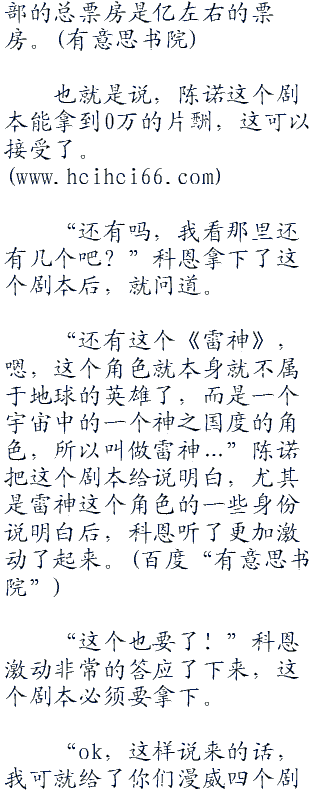 部的总票房是亿左右的票
房。(有意思书院)
也就是说，陈诺这个剧
本能拿到0万的片酬，这可以
接受了。
(www.hcihci66.com)
“还有吗，我看那里还
有几个吧？”科恩拿下了这
个剧本后，就问道。
“还有这个《雷神》，
嗯，这个角色就本身就不属
于地球的英雄了，而是一个
宇宙中的一个神之国度的角
色，所以叫做雷神…”陈诺
把这个剧本给说明白，尤其
是雷神这个角色的一些身份
说明白后，科恩听了更加激
动了起来。(百度“有意思书
院”)
“这个也要了！”科恩
激动非常的答应了下来，这
个剧本必须要拿下。
“ok，这样说来的话，
我可就给了你们漫威四个剧